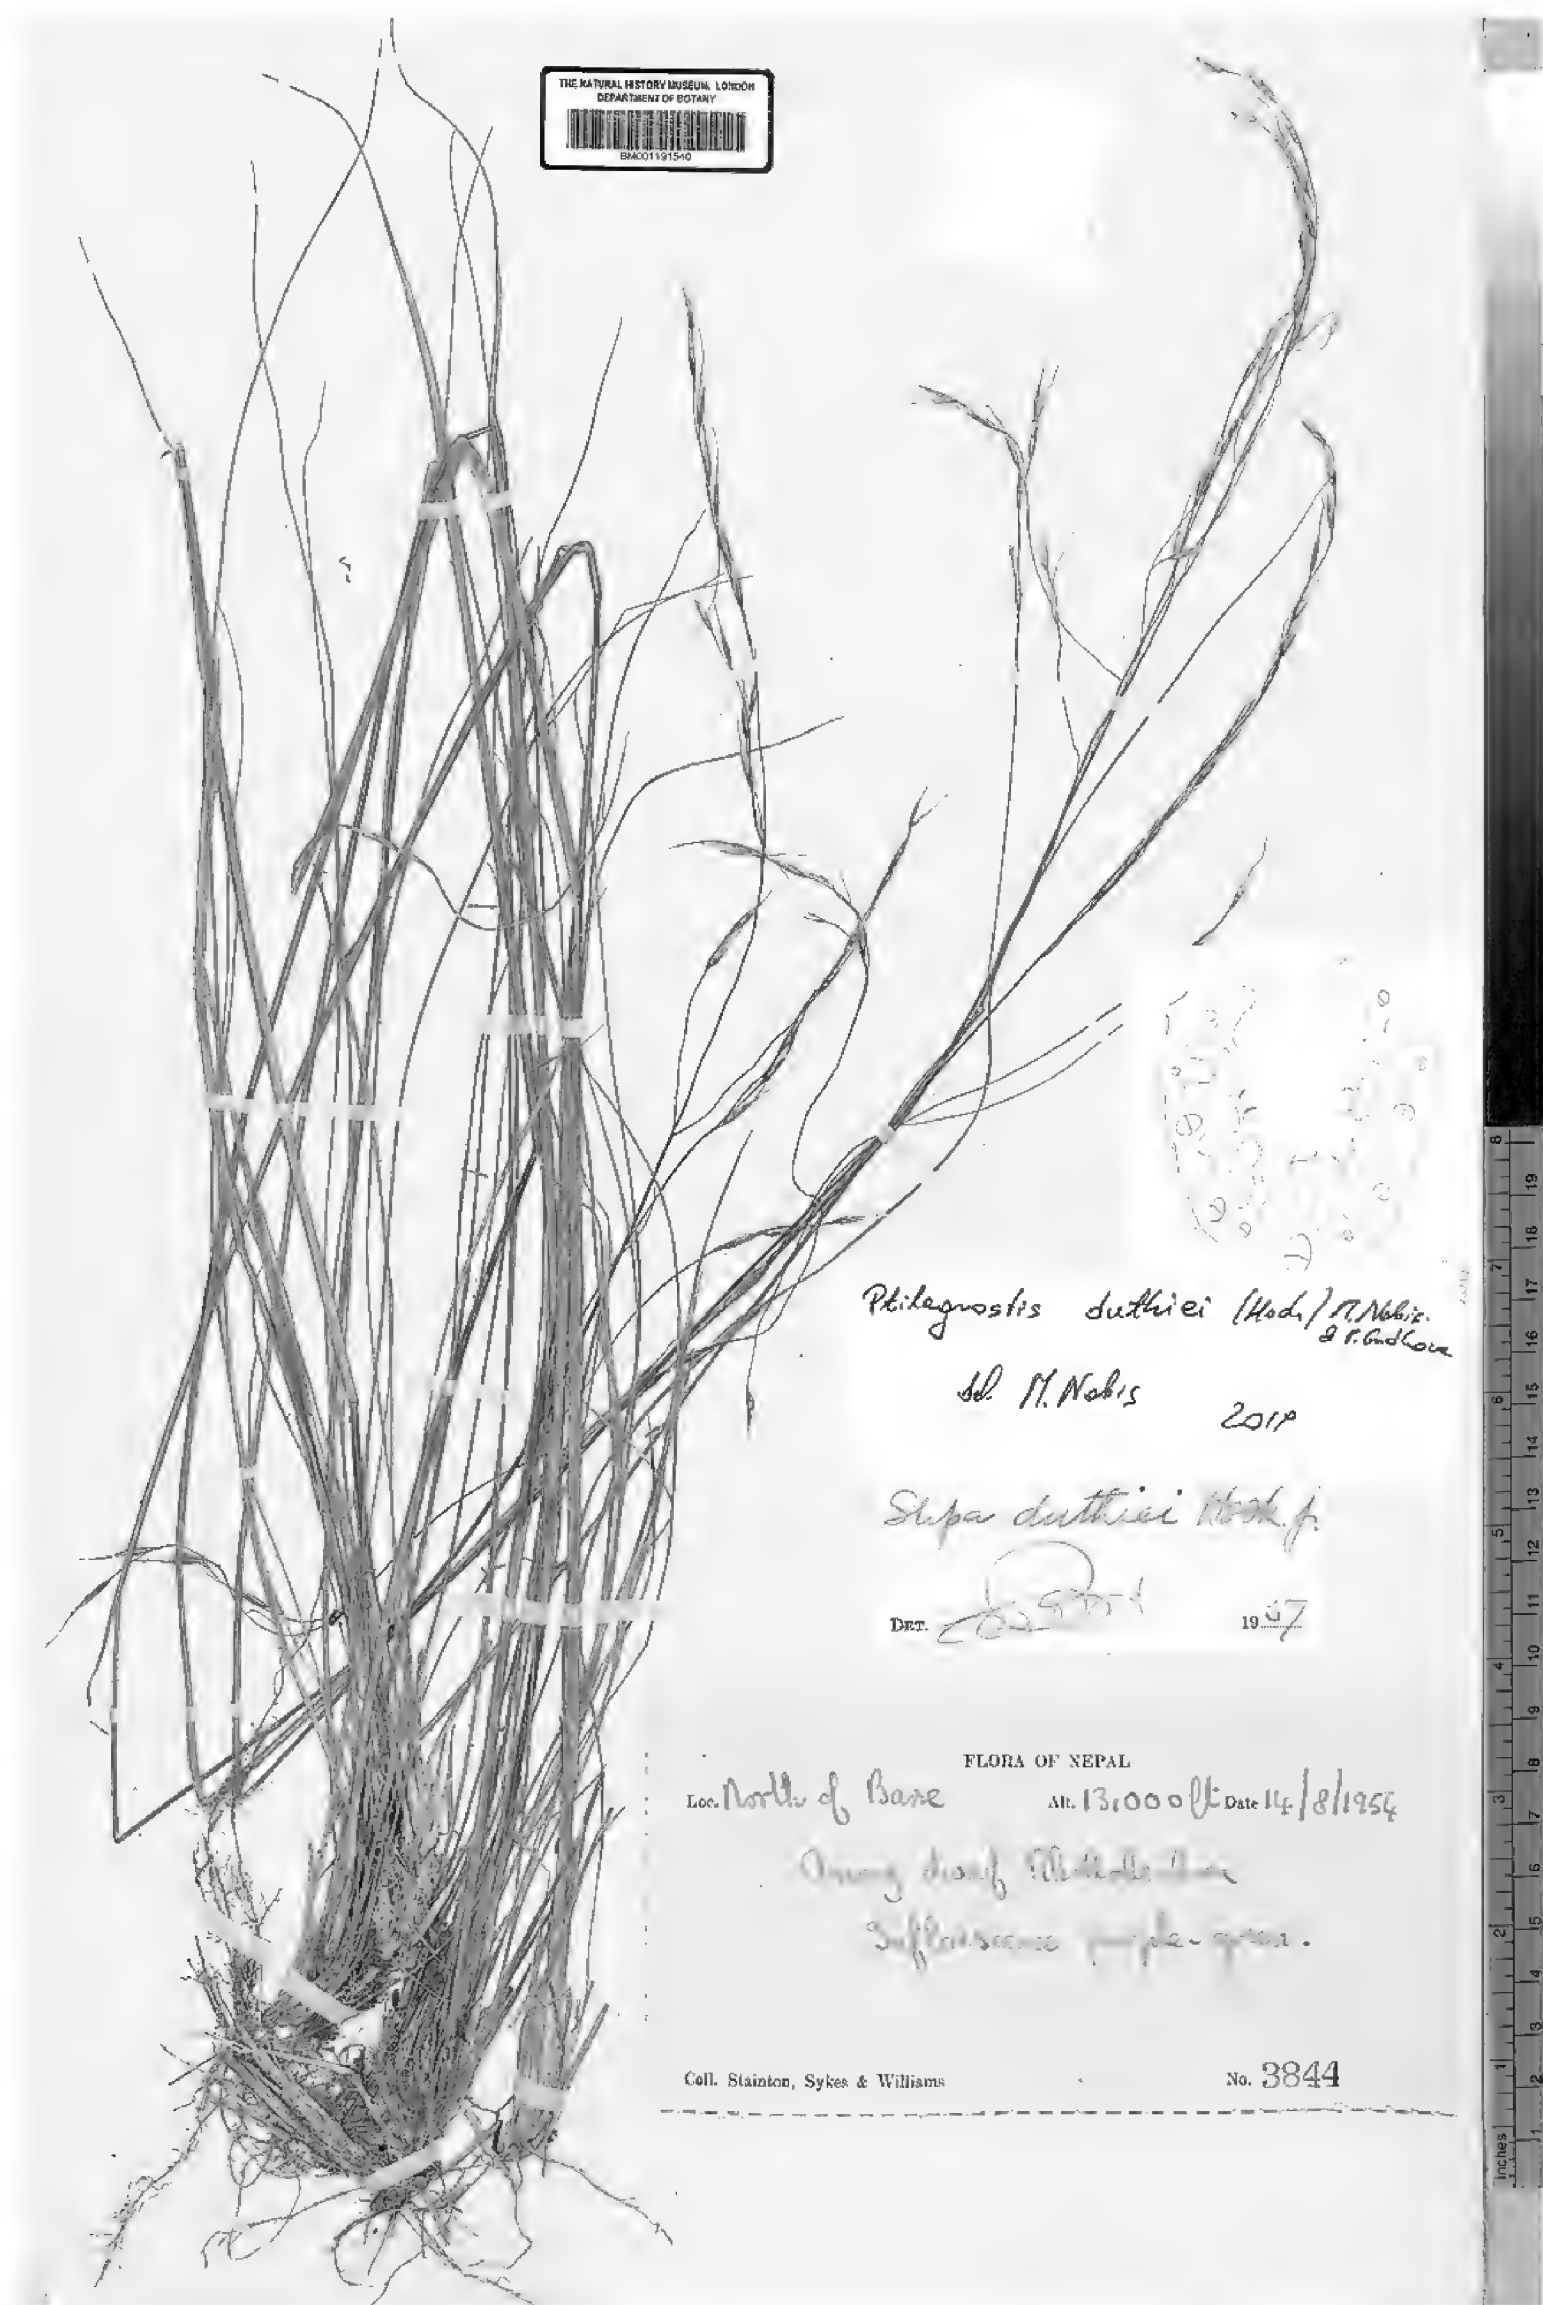 THE NATURAL HISTORY MUSEUM, LONDON
DEPARTMENT OF BOTANY
BM001191540
Ptilagrostis duthiei (Hook.) M. Nobis
& P. Gudkova
M. Nobis
Stipa duthiei Hook. f.
DET.
19
FLORA OF NEPAL
Loc. North of Barse Alt. 13,000 ft Date 14/8/1954
Among dwarf Rhododendron
Inflorescence purple-green.
Coll. Stainton, Sykes & Williams No. 3844
8
19
18
7
17
16
6
15
14
13
5
12
11
4
10
9
8
3
7
6
2
5
4
3
1
2
Inches
1